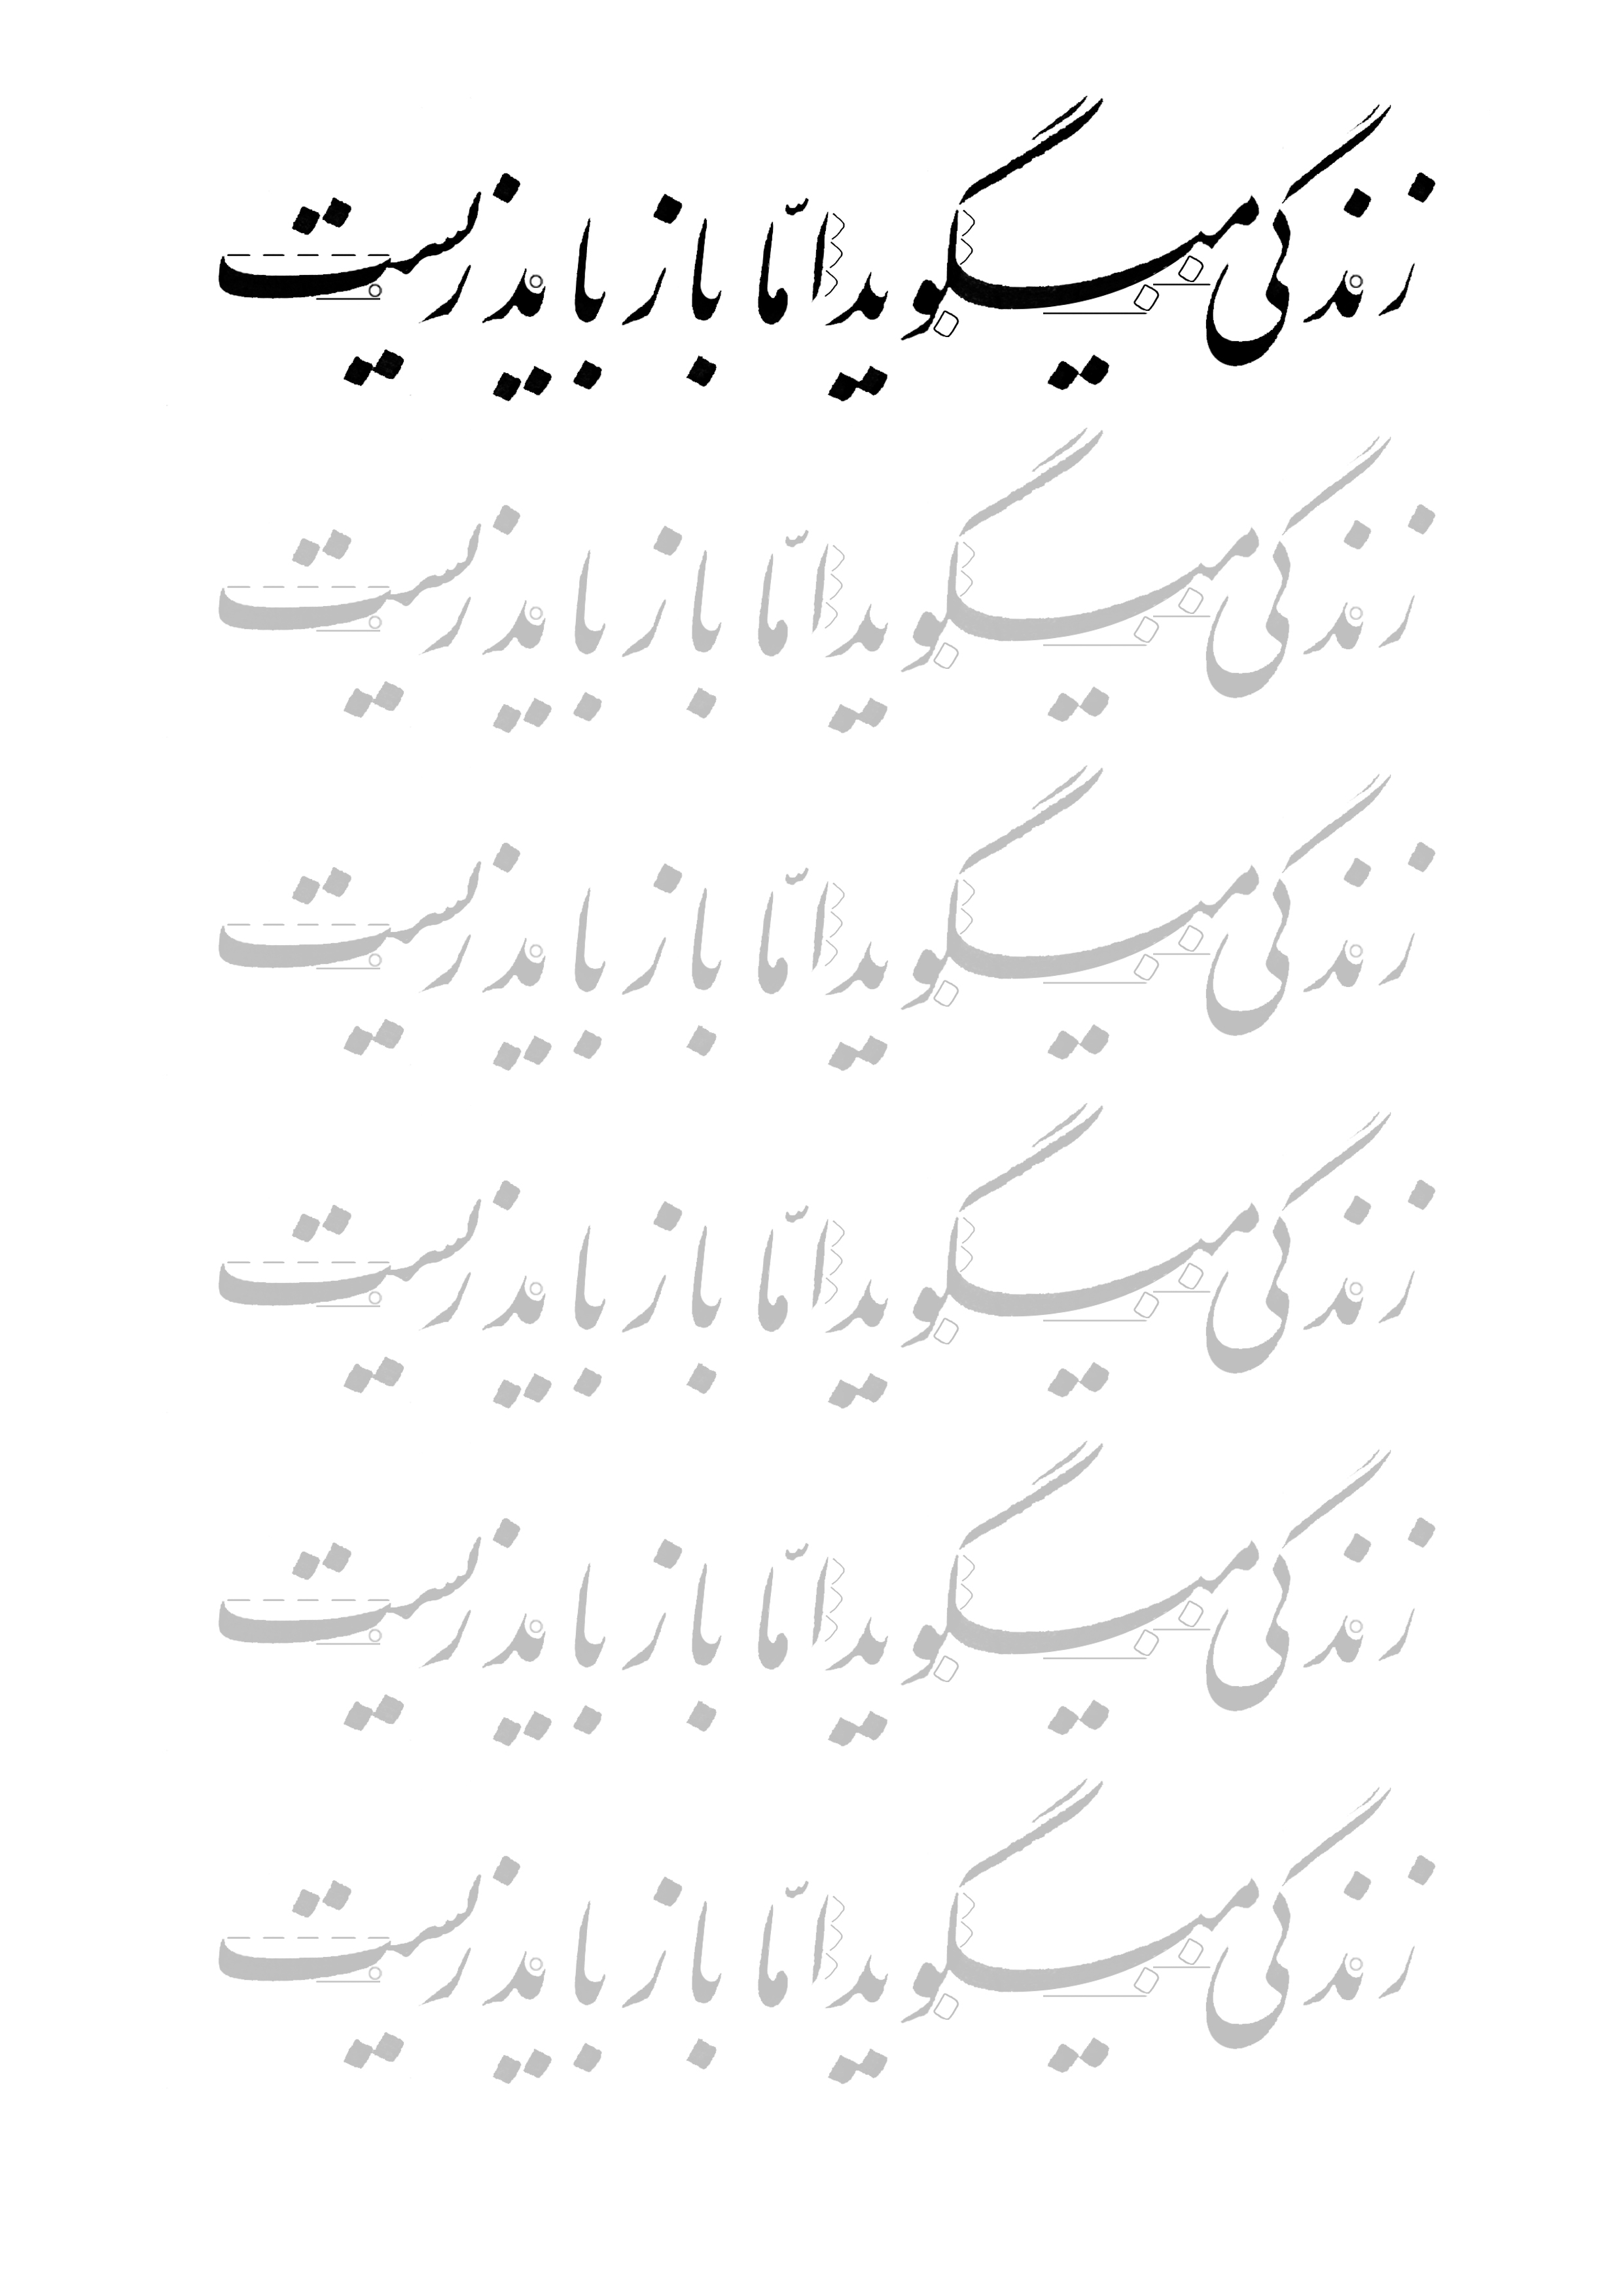 زندگی میگوید اما باز باید زیست
زندگی میگوید اما باز باید زیست
زندگی میگوید اما باز باید زیست
زندگی میگوید اما باز باید زیست
زندگی میگوید اما باز باید زیست
زندگی میگوید اما باز باید زیست